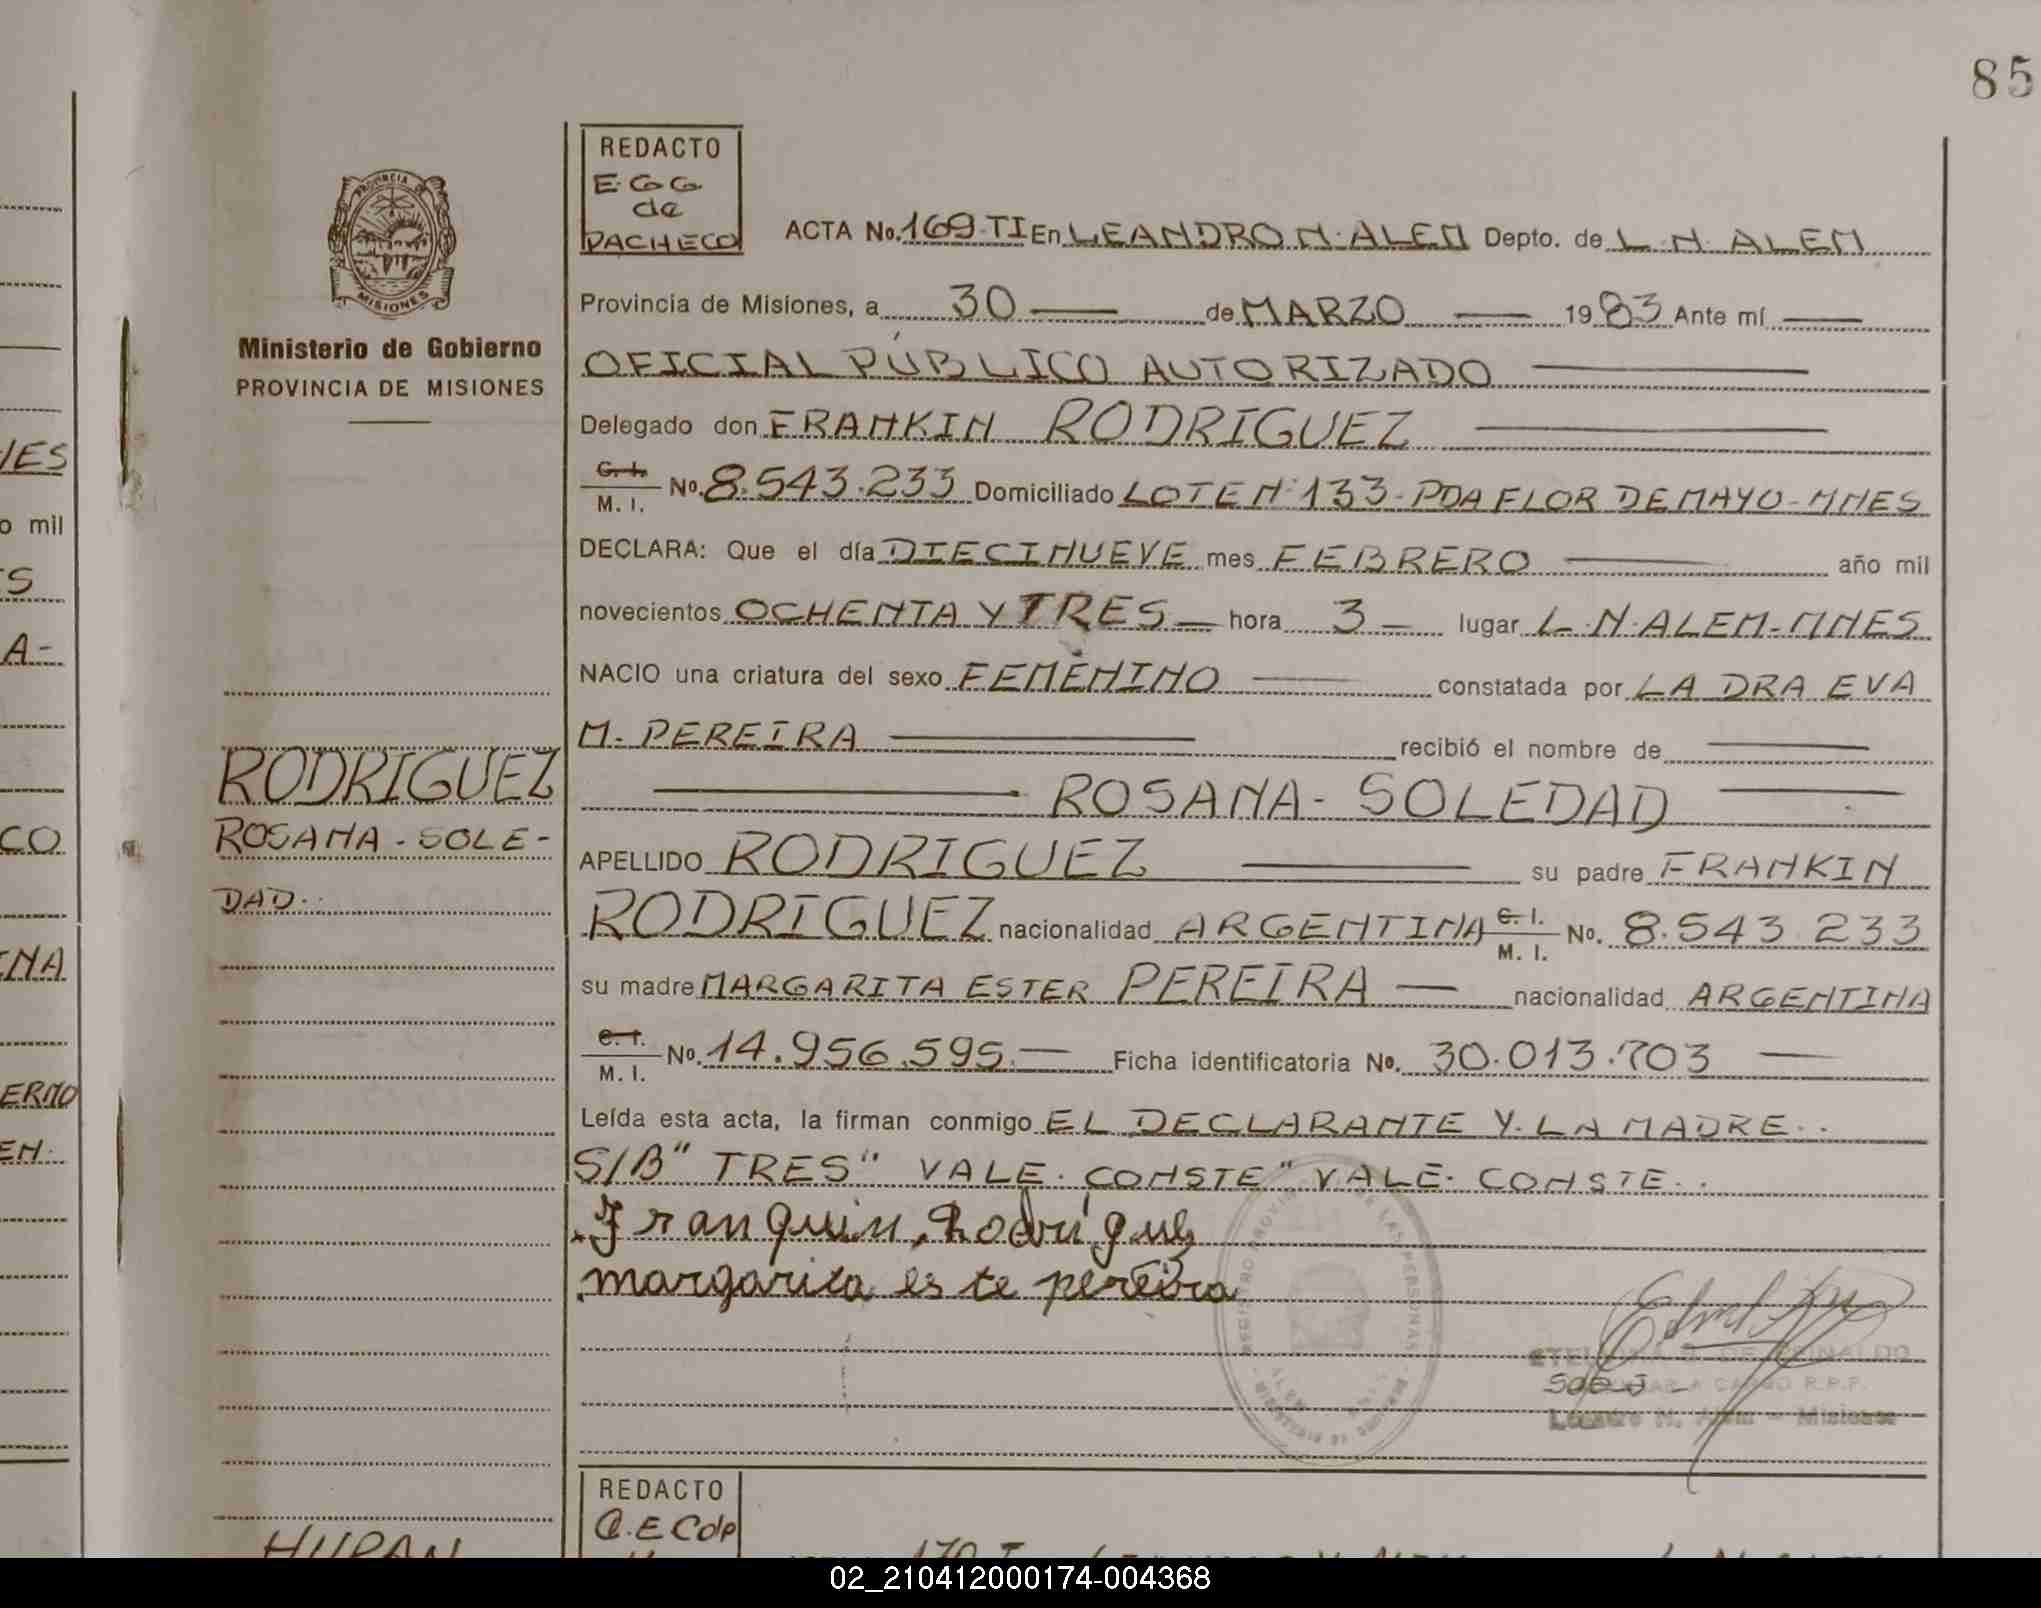 85
REDACTO
E. G. G.
de
PACHECO
ACTA No. 169-TI En LEANDRO N. ALEM Depto. de L. N. ALEM
PROVINCIA DE
MISIONES
Provincia de Misiones, a 30 de MARZO 1983 Ante mí
Ministerio de Gobierno
PROVINCIA DE MISIONES
OFICIAL PÚBLICO AUTORIZADO
Delegado don FRANKIN RODRIGUEZ
C. I.
M. I. No. 8.543.233 Domiciliado LOTE N° 133- PDA FLOR DE MAYO- MNES
DECLARA: Que el día DIECINUEVE mes FEBRERO año mil
novecientos OCHENTA Y TRES hora 3 lugar L. N. ALEM- MNES
NACIO una criatura del sexo FEMENINO constatada por LA DRA EVA
M. PEREIRA recibió el nombre de
ROSANA- SOLEDAD
RODRIGUEZ
ROSANA - SOLE-
DAD.
APELLIDO RODRIGUEZ su padre FRANKIN
RODRIGUEZ nacionalidad ARGENTINA C. I. M. I. No. 8.543.233
su madre MARGARITA ESTER PEREIRA nacionalidad ARGENTINA
C. I.
M. I. No. 14.956.595 Ficha identificatoria No. 30.013.703
Leída esta acta, la firman conmigo EL DECLARANTE Y LA MADRE..
S/B "TRES" VALE. CONSTE" VALE. CONSTE..
Franquin Rodrigue
margarita es te pereira
Leandro N. Alem - Misiones
REDACTO
HUPAN
VES
o mil
S
A-
CO
INA
ERNO
EN.
02_210412000174-004368